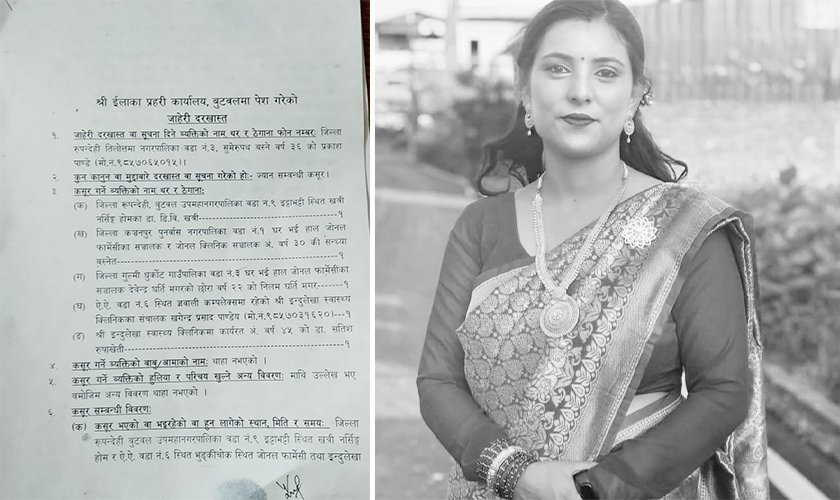 श्री ईलाका प्रहरी कार्यालय, बुटवलमा पेश गरेको
जाहेरी दरखास्त
१. जाहेरी दरखास्त वा सूचना दिने ब्यक्तिको नाम थर र ठेगाना फोन नम्बर: जिल्ला
रूपन्देही तिलोत्तमा नगरपालिका वडा नं.३, सुमेरूपथ बस्ने वर्ष ३६ को प्रकाश
पाण्डे (मो.नं.९८५७०६५०१५)।
२. कुन कानुन वा मुद्दाबारे दरखास्त वा सूचना गरेको हो:- ज्यान सम्बन्धी कसूर।
३. कसूर गर्ने ब्यक्तिको नाम थर र ठेगाना:
(क) जिल्ला रूपन्देही, बुटवल उपमहानगरपालिका वडा नं.९ इट्टाभट्टी स्थित खत्री
नर्सिङ्ग होमका डा. डि.बि. खत्री-----------------------------१
(ख) जिल्ला कञ्चनपुर पुनर्वास नगरपालिका वडा नं.१ घर भई हाल जोनल
फार्मेसीका सञ्चालक र जोनल क्लिनिक सञ्चालक अं. वर्ष ३० की सन्ध्या
बस्नेत------------------------------------------------१
(ग) जिल्ला गुल्मी धुर्कोट गाउँपालिका वडा नं.३ घर भई हाल जोनल फार्मेसीका
सञ्चालक देवेन्द्र घर्ति मगरको छोरा वर्ष २२ को निलम घर्ति मगर-------१
(घ) ऐ.ऐ. वडा नं.६ स्थित ज्ञवाली कम्प्लेक्समा रहेको श्री इन्दुलेखा स्वास्थ्य
क्लिनिकका संचालक खगेन्द्र प्रसाद पाण्डेय (मो.नं.९८५७०३९६२०)---१
(ङ) श्री इन्दुलेखा स्वास्थ्य क्लिनिकमा कार्यरत अं. वर्ष ४५ को डा. सतिश
रूपाखेती-----------------------------------------------१
४. कसूर गर्ने ब्यक्तिको बाबु/आमाको नाम: थाहा नभएको ।
५. कसूर गर्ने ब्यक्तिको हुलिया र परिचय खुल्ने अन्य विवरण: माथि उल्लेख भए
बमोजिम अन्य विवरण थाहा नभएको ।
६. कसूर सम्बन्धी विवरण:
(क) कसूर भएको वा भइरहेको वा हुन लागेको स्थान, मिति र समय: जिल्ला
रूपन्देही बुटवल उपमहानगरपालिका वडा नं.९ इट्टाभट्टी स्थित खत्री नर्सिङ्ग
होम र ऐ.ऐ. वडा नं.६ स्थित भुड्कीचोक स्थित जोनल फार्मेसी तथा इन्दुलेखा